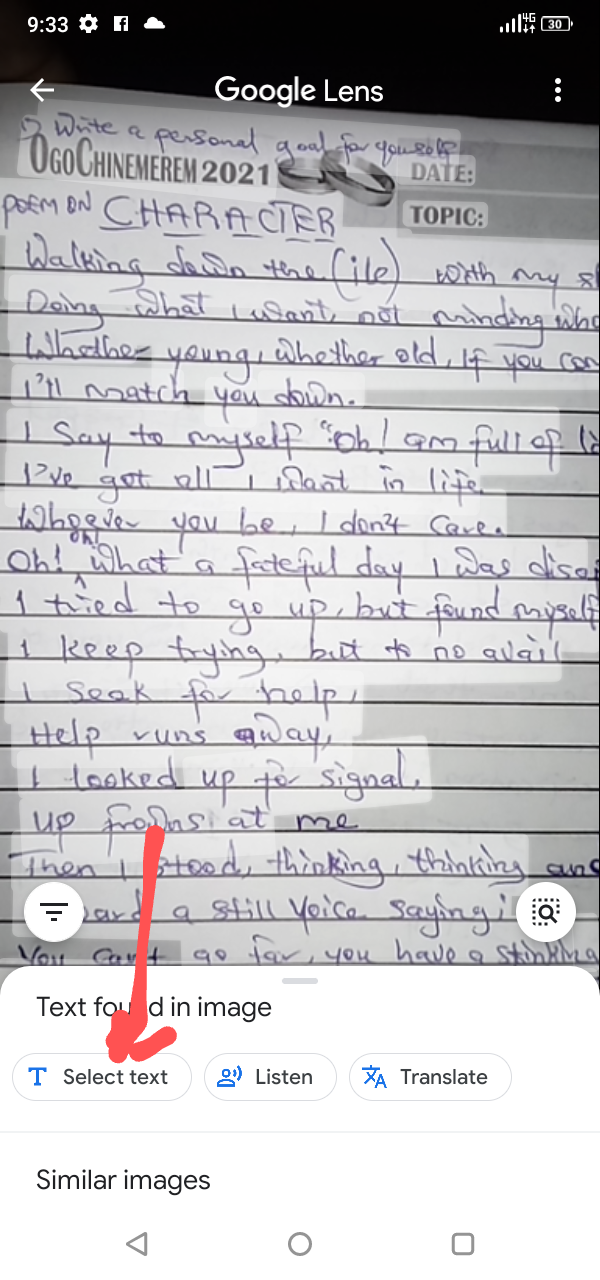 9:33 4G 30
Google Lens
Write a personal goal for yourself
OGOCHINEMEREM 2021 DATE:
POEM ON CHARACTER TOPIC:
Walking down the (ile) with my
Doing what I want, not minding who
Whether young, whether old, If you
I'll match you down.
I Say to myself "Oh! am full of
I've got all I want in life.
Whoever you be, I don't care.
Oh! oh! What a fateful day I was
I tried to go up, but found myself
I keep trying, but to no avail
I seek for help,
Help runs away,
I looked up for signal,
up frowns at me
Then I stood, thinking, thinking and
a still voice saying;
You can't go far, you have a stinking
Text found in image
Select text Listen Translate
Similar images